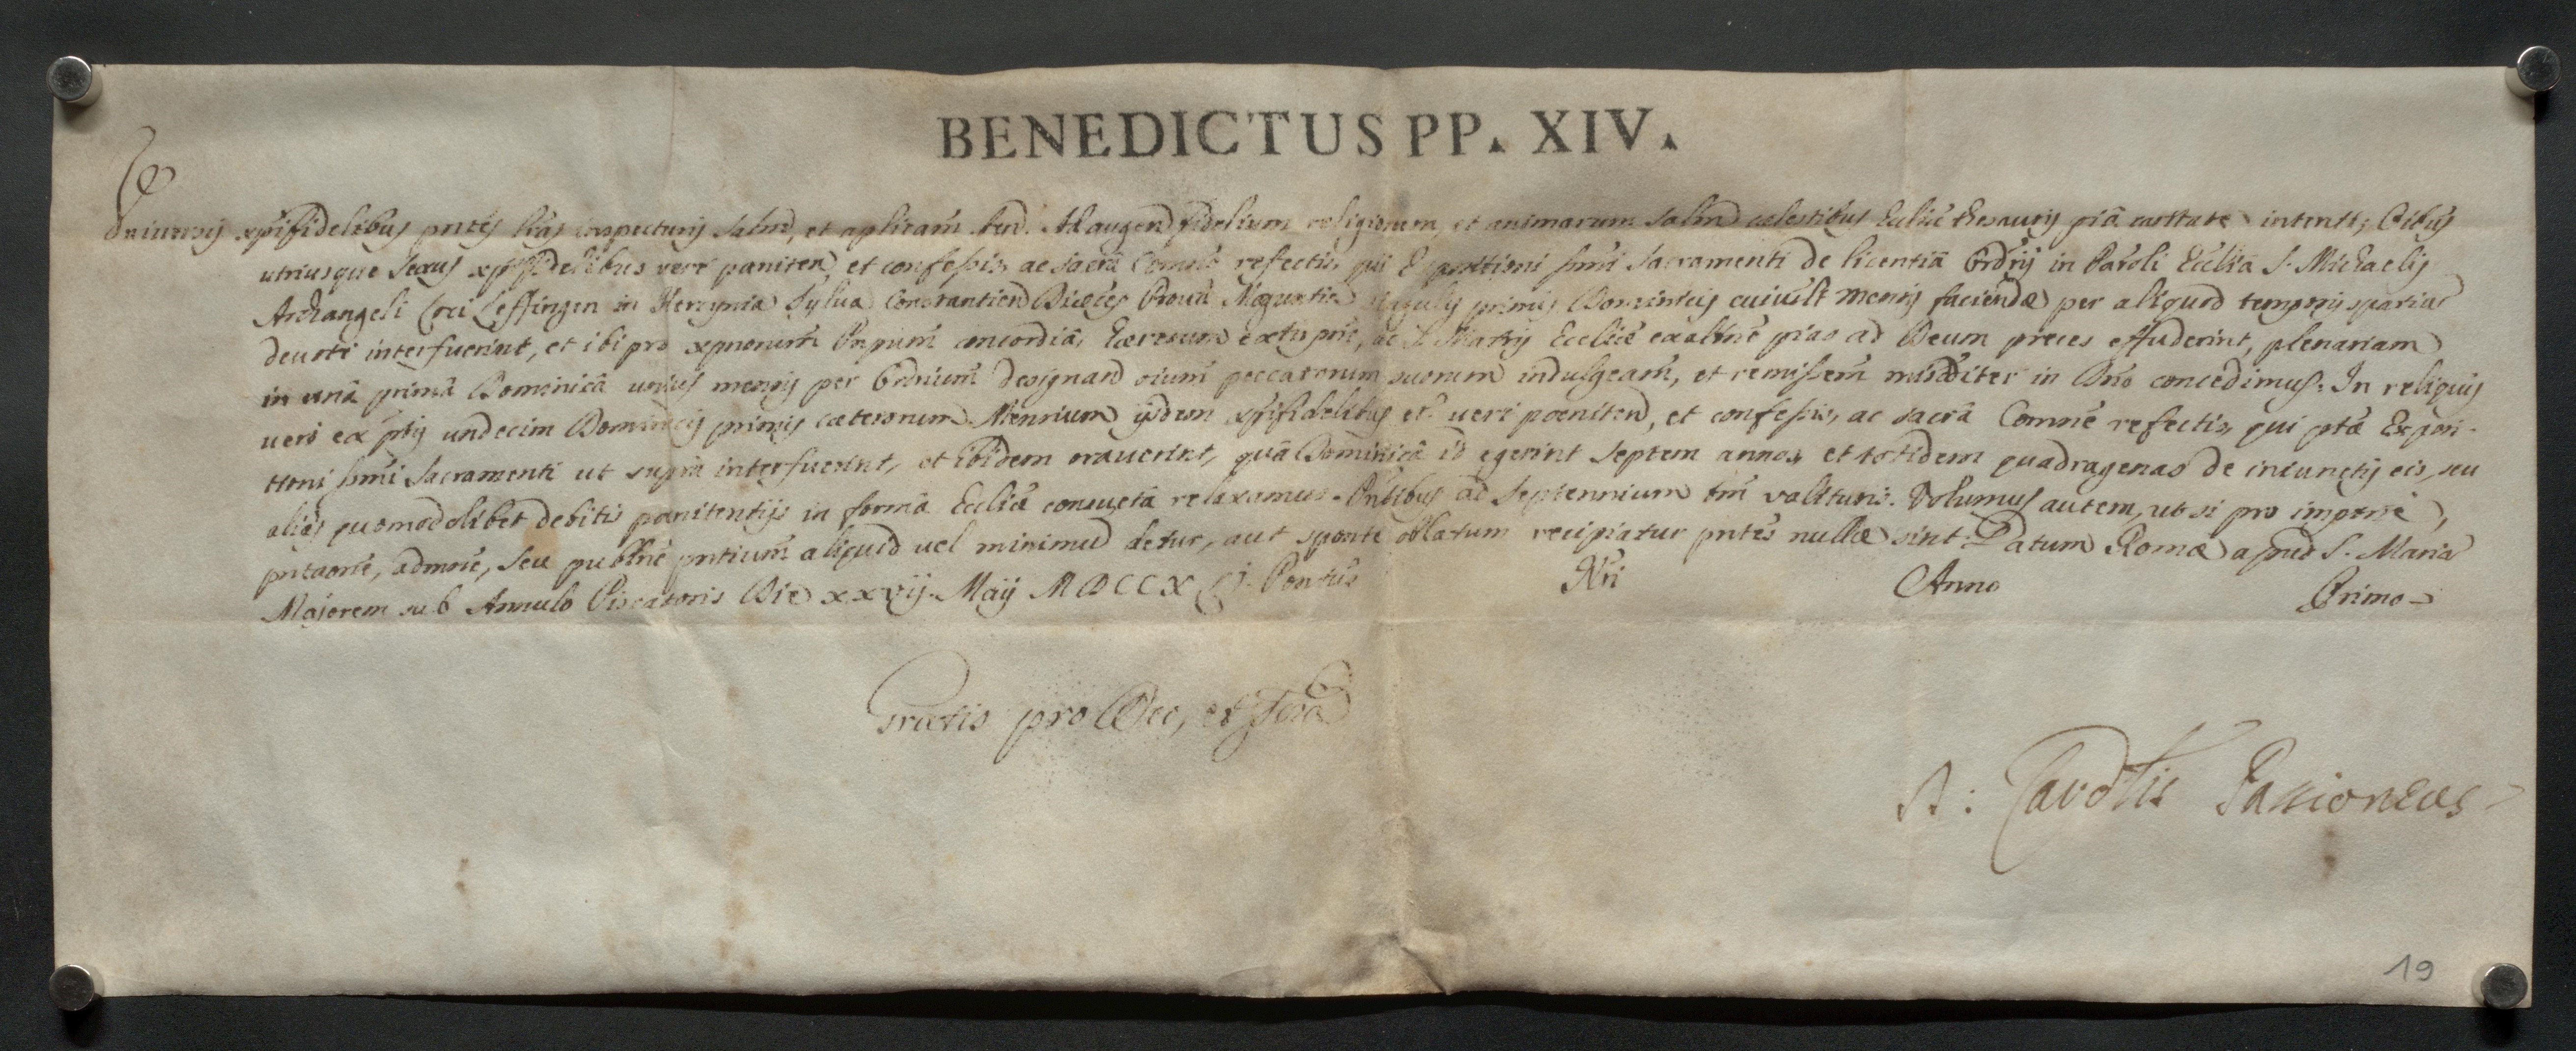 BENEDICTUS PP. XIV.
Universis xp̃ifidelibus pñtes l̃ras inspecturis salm̃, et ap̃licam̃ Ben. Ad augend fidelium religionem, et animarum salm̃ cælestibus Eccliæ thesauris piâ caritate intenti; Oibus
utriusque sexus xp̃ifidelibus verè pæniten, et confessis, ac sacrâ Comne refectis, qui Expositioni Smi Sacramenti de licentiâ Ordrij in Paroli Ecclia S. Michaelis
Archangeli Loci Leffingen in Hercynia Sylva Constantien Diæces Provæ Moguntin singulis primis Dominicis cuiuslt mensis faciendæ per aliquod temporis spatiu
devotè interfuerint, et ibi pro xpnorum Pnpum concordia, hæresum extirpne, ac S. Matris Eccliæ exaltne pias ad Deum preces effuderint, plenariam
in unâ primâ Dominicâ unius mensis per Ordrium designand oium peccatorum suorum indulgeam, et remissem misediter in Dno concedimus. In reliquis
vero ex pbis undecim Dominicis primis cæterorum Mensium ijsdem xpifidelibus etc verè poeniten, et confessis, ac sacrâ Comne refectis, qui ptæ Exposi-
tioni Smi Sacramenti ut supra interfuerint, et ibidem oraverint, quâ Dominicâ id egerint septem annos, et totidem quadragenas de iniunctis eis, seu
alias quomodolibet debitis pænitentijs in formâ Eccliæ consuetâ relaxamus. Pntibus ad septennium tm valituris. Volumus autem, ut si pro impetne,
pntaone, admne, seu publne pntium aliquid vel minimum detur, aut sponte oblatum recipiatur pntes nullæ sint. Datum Romæ apud S. Maria
Majorem sub Annulo Piscatoris Die xxvij. Maij MDCCXLJ. Pontus Nri Anno Primo
Gratis pro Deo, et Scra
D: Cardlis Passioneus
19